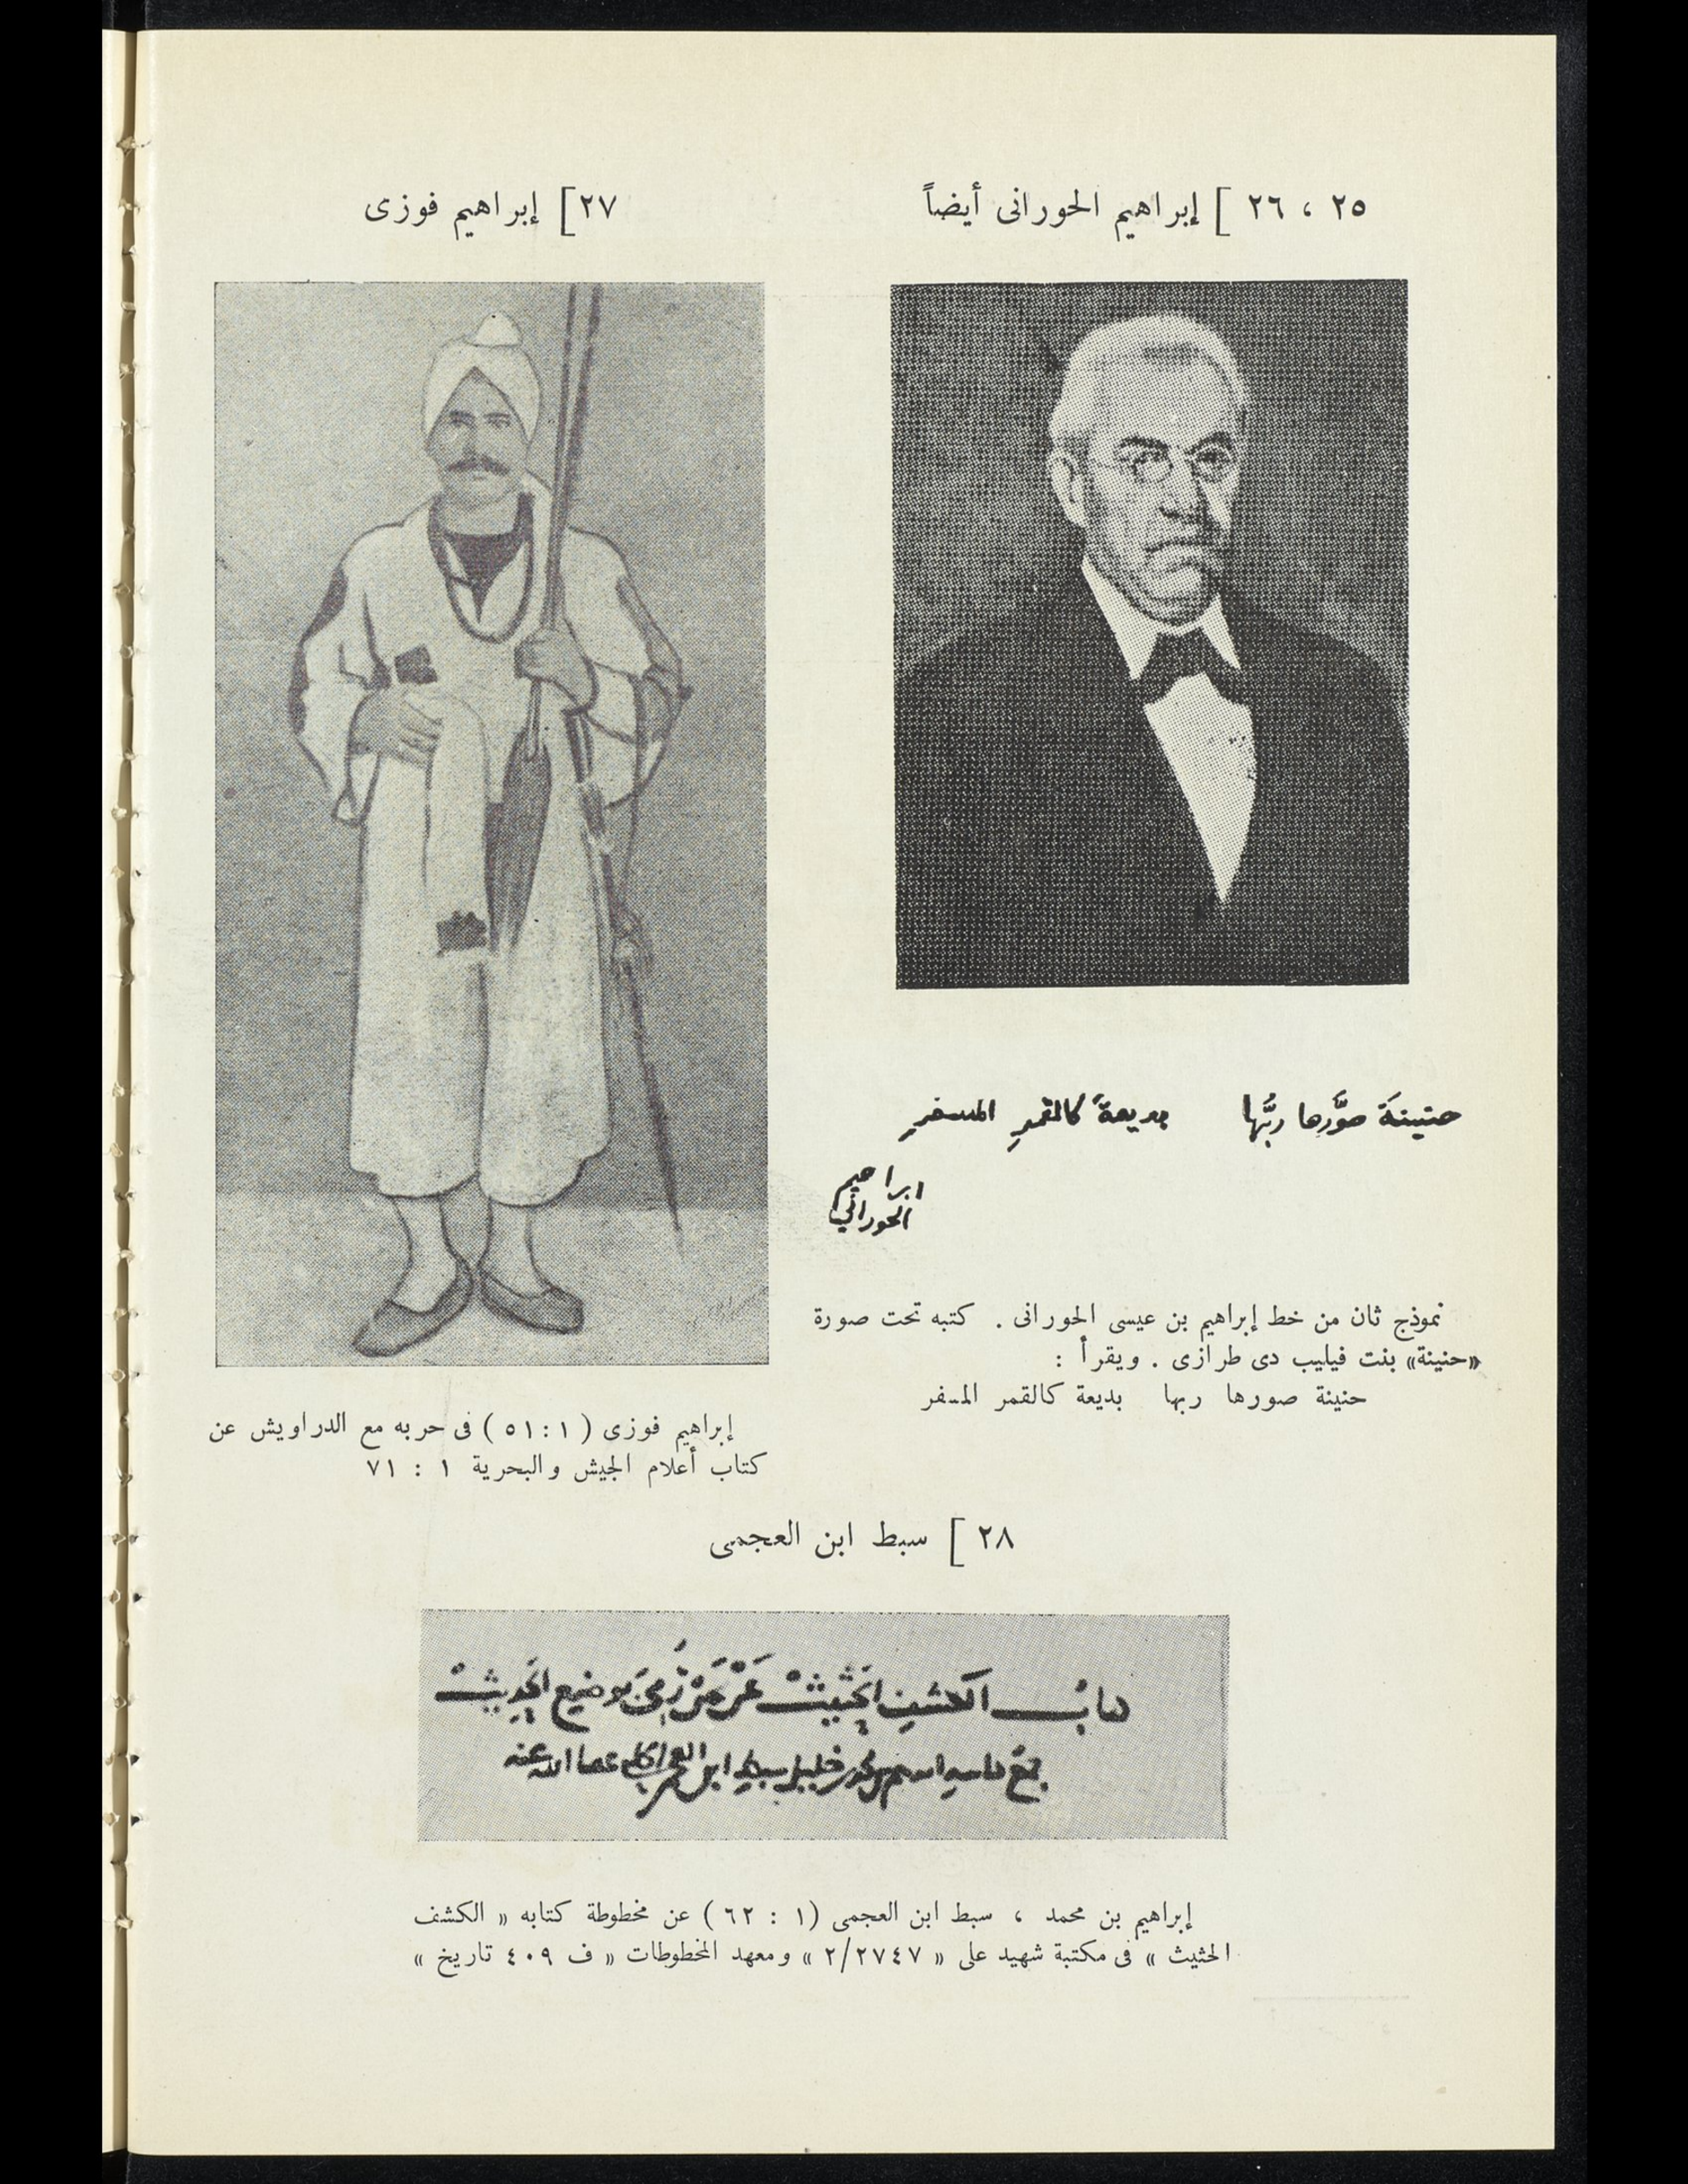 ٢٥ ، ٢٦ ] إبراهيم الحورانى أيضاً
حنينةَ صوَّرها ربُّها بديعةً كالقمرِ المسفرِ
ابراهيم
الحوراني
نموذج ثان من خط إبراهيم بن عيسى الحورانى . كتبه تحت صورة
«حنينة» بنت فيليب دى طرازى . ويقرأ :
حنينة صورها ربها بديعة كالقمر المسفر
٢٧ ] إبراهيم فوزى
إبراهيم فوزى ( ١ : ٥١ ) فى حربه مع الدراويش عن
كتاب أعلام الجيش والبحرية ١ : ٧١
٢٨ ] سبط ابن العجمى
كتاب الكشف الحثيث عَمَّنْ رُمِيَ بوضع الحديث
جمع كاتبه ابراهيم بن محمد بن خليل سبط ابن العجمي الحلبي عفا الله عنه
إبراهيم بن محمد ، سبط ابن العجمى (١ : ٦٢ ) عن مخطوطة كتابه « الكشف
الحثيث » فى مكتبة شهيد على « ٢/٢٧٤٧ » ومعهد المخطوطات « ف ٤٠٩ تاريخ »